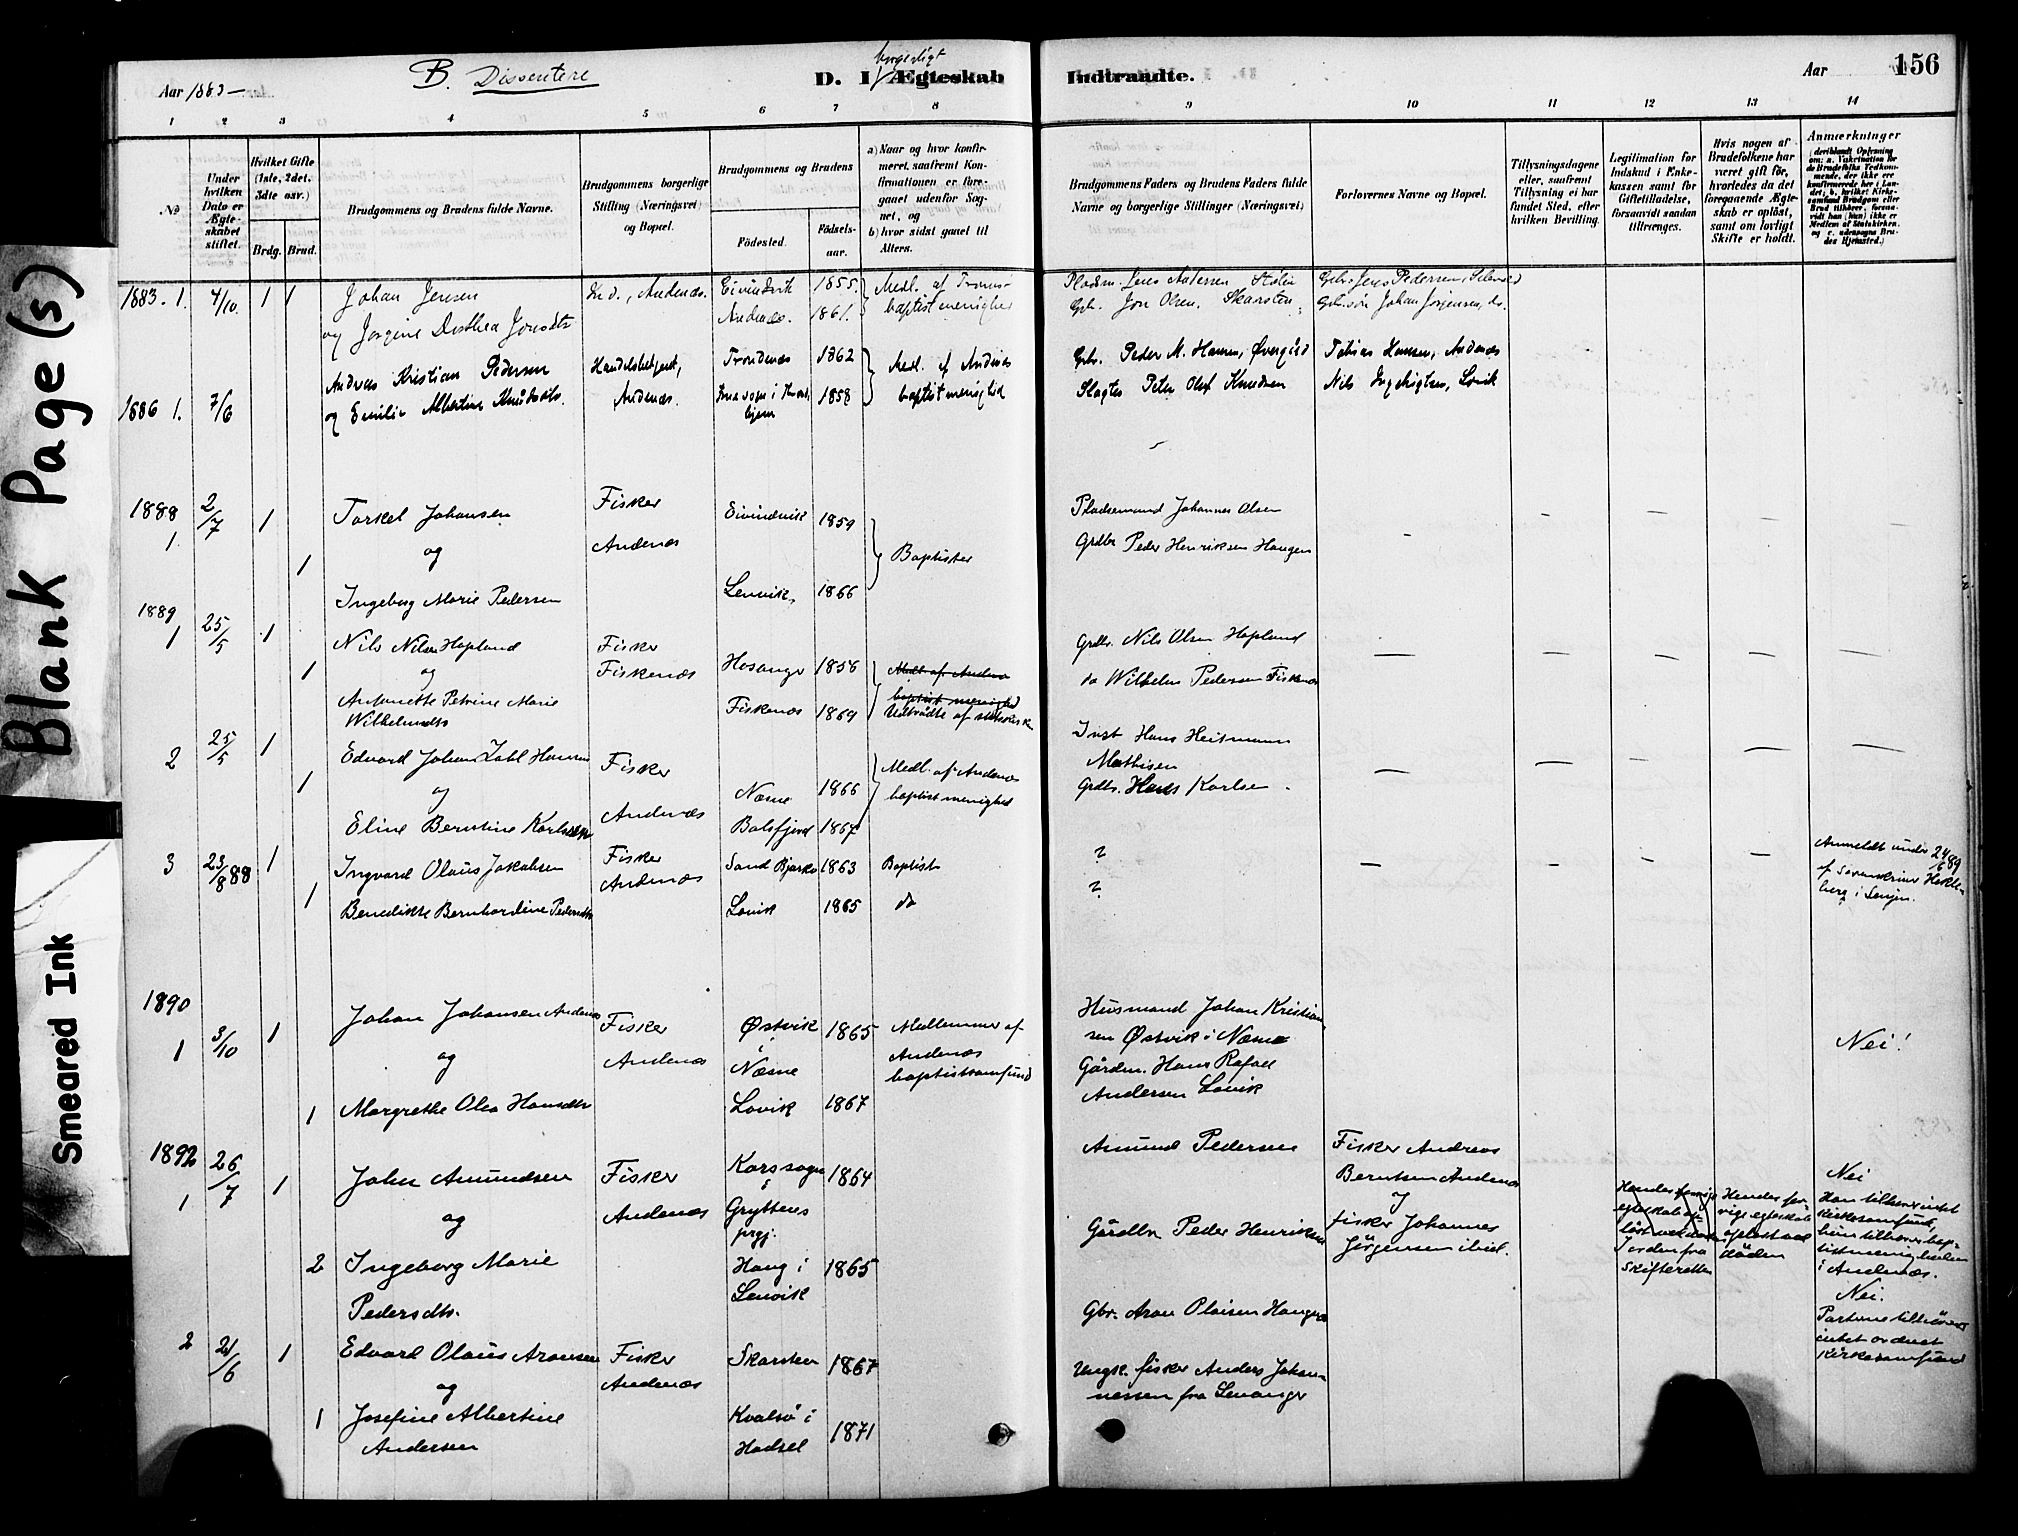 Blank Page(s)
Smeared Ink
Aar 1883 —
B. Dissentere
borgerligt
D. I Ægteskab
Indtraadte.
Aar
156
1 2 3 4 5 6 7 8 9 10 11 12 13 14
No
Under hvilken Dato er Ægteskabet stiftet.
Hvilket Gifte (1ste, 2det, 3die osv.)
Brdg. Brud.
Brudgommens og Brudens fulde Navne.
Brudgommens borgerlige Stilling (Næringsvei) og Bopæl.
Brudgommens og Brudens
Fødested.
Fødselsaar.
a) Naar og hvor konfirmeret, saafremt Konfirmationen er foregaaet udenfor Sognet, og
b) hvor sidst gaaet til Alters.
Brudgommens Faders og Brudens Faders fulde Navne og borgerlige Stillinger (Næringsvei)
Forlovernes Navne og Bopæl.
Tillysningsdagene eller, saafremt Tillysning ei har fundet Sted, efter hvilken Bevilling.
Legitimation for Indskud i Enkekassen samt for Giftetilladelse, forsaavidt saadan tiltrænges.
Hvis nogen af Brudefolkene har været gift før, hvorledes da det foregaaende Ægteskab er opløst, samt om lovligt Skifte er holdt.
Anmærkninger
1883. 1. 4/10. 1 1
Johan Jensen
og Jørgine Dorthea Jonsdtr
Andenæs.
Eivindvik 1855.
Andenæs. 1861.
Medl. af Tromsø
baptistmenighed
Gbr. Jon Olsen, Skarsten
Gbr. Jens Pedersen,
Johan Jørgensen, do.
1886 1. 7/6
Andreas Kristian Pedersen
og Emilie Albertine Knudsdtr.
Handelsbetjent,
Andenæs.
Trondenæs 1862
1858
Medl. af Andenæs
baptistmenighed
Gbr. Peder M. Hansen,
Slagter Peter Olaf Knudsen
Tobias Hansen, Andenæs
Nils Ingebrigtsen, Lovik
1888
1. 2/7 1
Torkel Johansen
og
1
Ingeborg Marie Pedersen
Fisker
Andenæs
Eivindvik 1859
Lenvik, 1866
Baptister
Pladsemand Johannes Olsen
Grdbr Peder Henriksen Haugen
1889
1 25/5 1
Nils Nilsen Hopland
1 og
Antonette Petrine Marie
Wilhelmsdtr
Fisker
Fiskenæs
Hosanger 1856
Fiskenæs 1869
Medl af Andenæs
baptistmenighed
Udtrådte af statskirk
Grdbr. Nils Olsen Hopland
do Wilhelm Pedersen Fiskenæs
2 25/5 1
Edvard Johan Zahl Hansen
1 og
Eline Berntine Karlsdtr
Fisker
Andenæs
Næsne 1866
Balsfjord 1867
Medl. af Andenæs
baptistmenighed
Inst Hans Heitmann
Mathisen
Grdbr. Hans Karlsen.
3 23/8 88 1
Ingvard Olaus Jakobsen
1
Benedikte Bernhardine Pedersdtr
Fisker
Andenæs
Sand Bjarkø 1863
Lovik 1865
Baptist
do
?
?
Anmeldt under 24/6 89
af Sorenskriver
i Senjen.
1890
1 3/10 1
Johan Johansen Andenæs
og
1 Margrethe Olea Hansdtr
Fisker
Andenæs
Østvik 1865
i
Næsne
Lovik 1867
Medlemmer af
Andenæs
baptistsamfund
Husmand Johan Kristian-
sen Østvik i Næsne
Gårdm. Hans Rafael
Andersen Lovik
Nei!
1892
1 26/7 1
John Amundsen
og
2 Ingeborg Marie
Pedersdtr.
Fisker
Andenæs
Kors sogn 1864
i
Gryttens
prgj.
Haug i 1865
Lenvik
Amund Pedersen
Gårdbr Peder Henriksen
Fisker Andreas
Berntsen Andenæs
og
fisker Johannes
Jørgensen ibid.
Hendes forrige
egteskab op-
løst ved døden
fra
Skifteretten
Hendes for-
rige egteskab
opløst ved
døden
Nei
Han tilhører intet
kirkesamfund,
hun tilhører bap-
tistmenigheden
i Andenæs.
2 21/6 1
Edvard Olaus Aronsen
og
1 Josefine Albertine
Andersen
Fisker
Andenæs
Skarsten 1867
Kvalsø i 1871
Hadsel
Gbr. Aron Haugen
Ungk. fisker Anders Johan-
nessen fra Levanger
Nei.
Parterne tilhører
intet ordnet
kirkesamfund